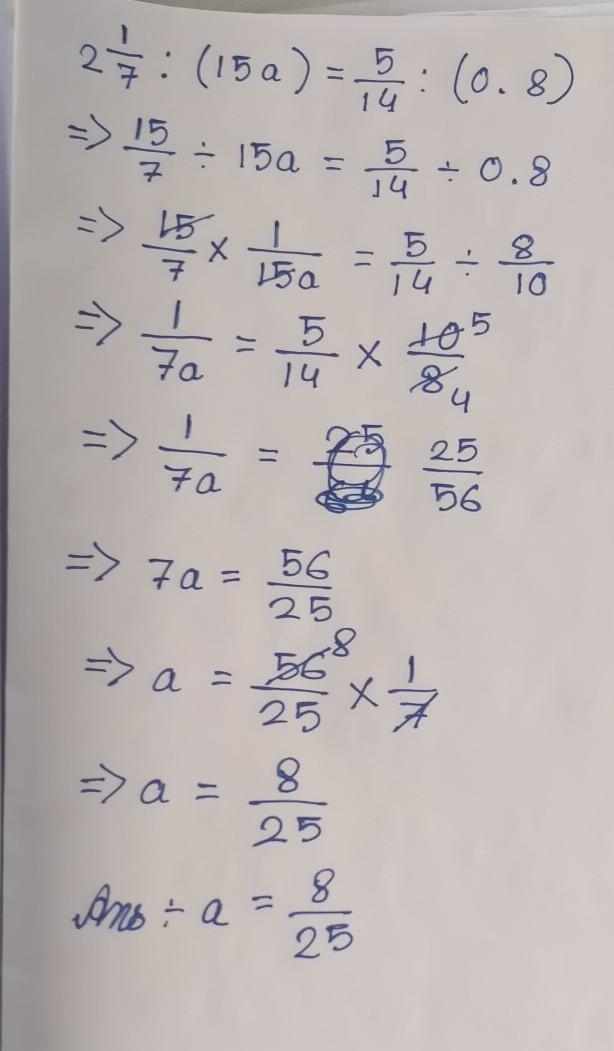 2 1/7 : (15a) = 5/14 : (0.8)
=> 15/7 ÷ 15a = 5/14 ÷ 0.8
=> 15/7 × 1/15a = 5/14 ÷ 8/10
=> 1/7a = 5/14 × 10/8 5 4
=> 1/7a = 25/56
=> 7a = 56/25
=> a = 56/25 8 × 1/7
=> a = 8/25
Ans ÷ a = 8/25